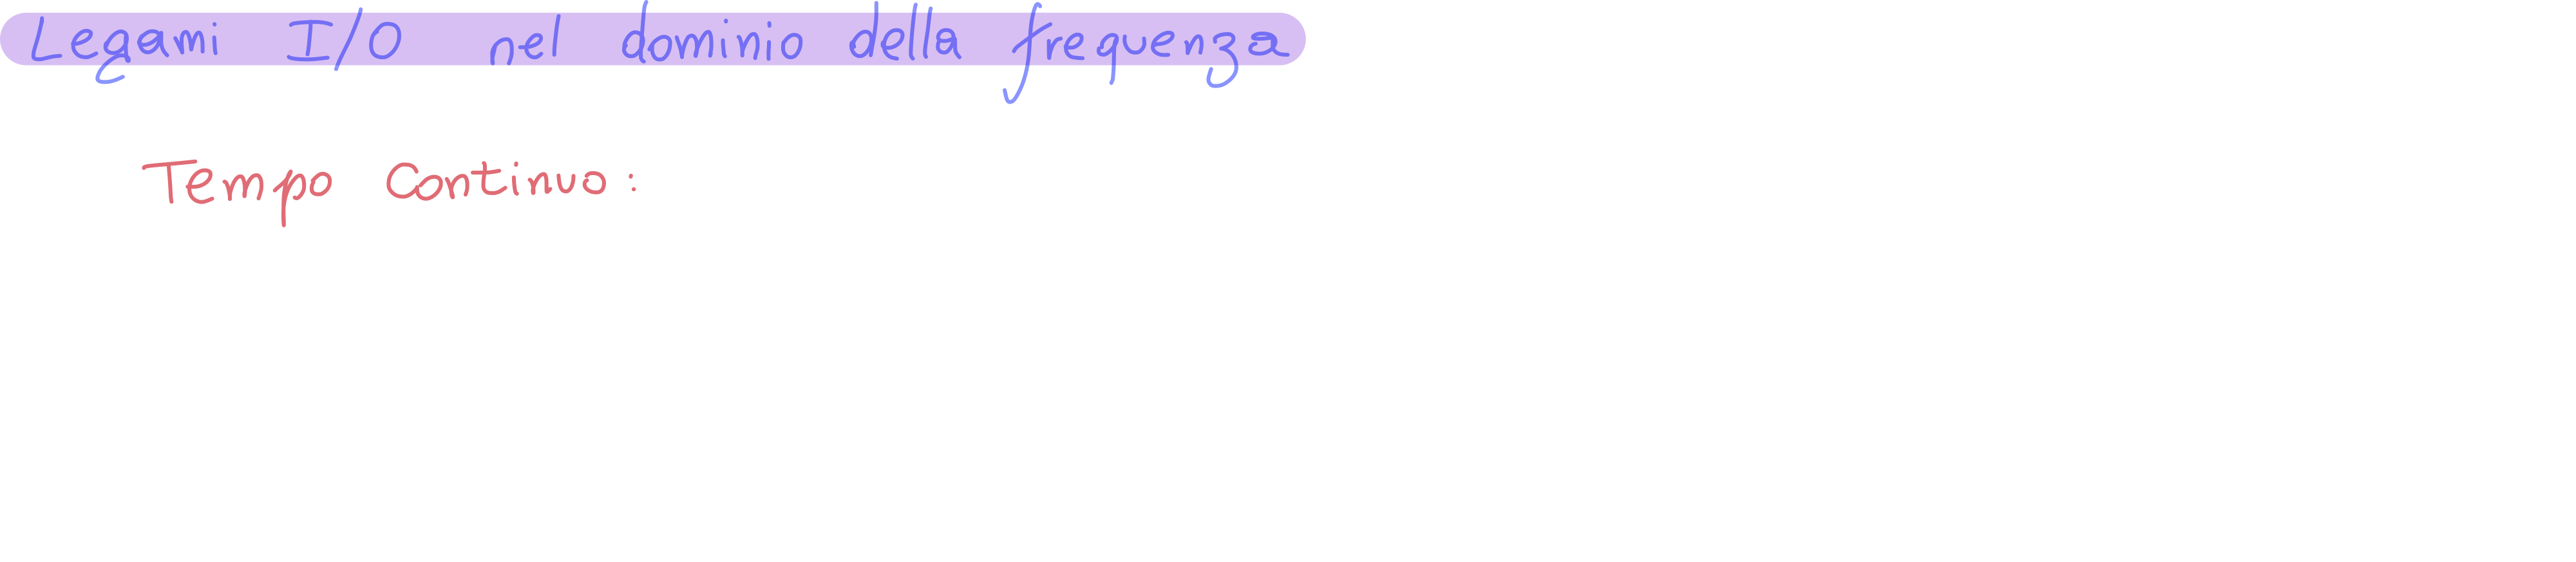 Legami I/O nel dominio della frequenza
Tempo Continuo: